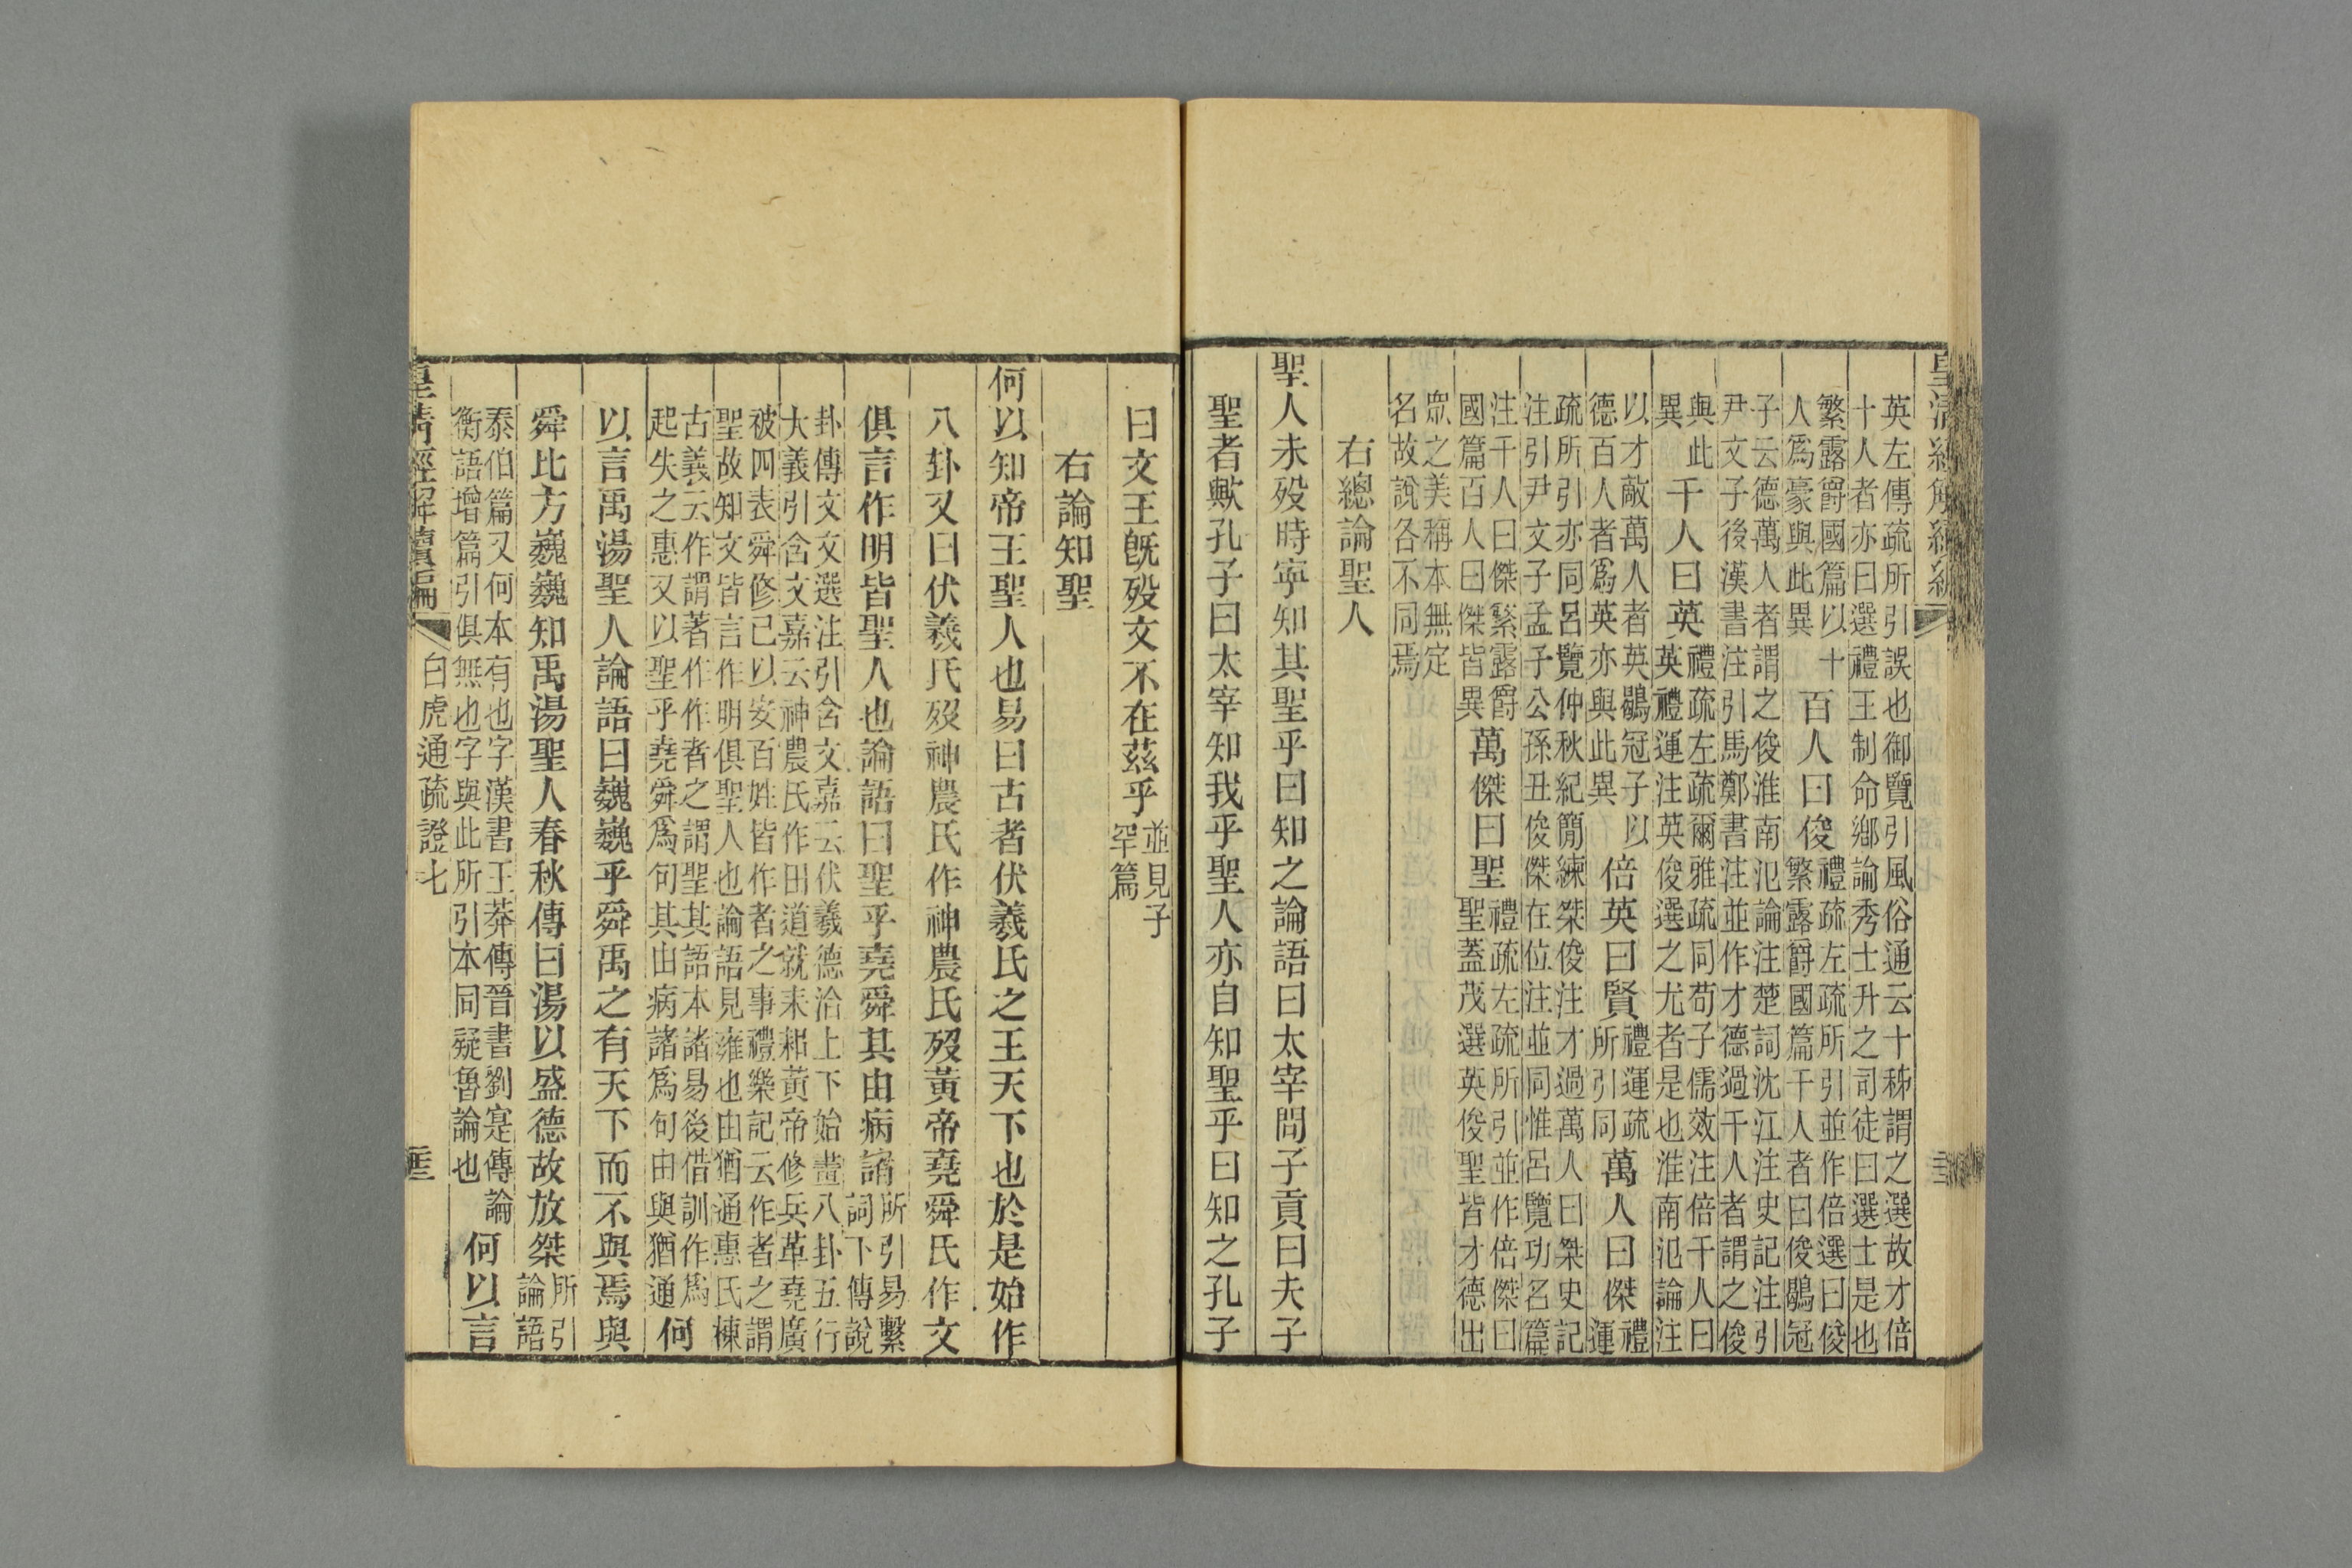 英左傳疏所引誤也御覽引風俗通云十秭謂之選故才倍
十人者亦曰選禮王制命鄉論秀士升之司徒曰選士是也
繁露爵國篇以十
人爲豪與此異
百人曰俊
禮疏左疏所引並作倍選曰俊
繁露爵國篇千人者曰俊鶡冠
子云德萬人者謂之俊淮南氾論注楚詞沈江注史記注引
尹文子後漢書注引馬鄭書注並作才德過千人者謂之俊
與此
異
千人曰英
禮疏左疏爾雅疏同荀子儒效注倍千人曰
英禮運注英俊選之尤者是也淮南氾論注
以才敵萬人者英鶡冠子以
德百人者爲英亦與此異
倍英曰賢
禮運疏
所引同
萬人曰傑
禮
運
疏所引亦同呂覽仲秋紀簡練桀俊注才過萬人曰桀史記
注引尹文子孟子公孫丑俊傑在位注並同惟呂覽功名篇
注千人曰傑繁露爵
國篇百人曰傑皆異
萬傑曰聖
禮疏左疏所引並作倍傑曰
聖蓋茂選英俊聖皆才德出
眾之美稱本無定
名故說各不同焉
右總論聖人
聖人未歿時寧知其聖乎曰知之論語曰太宰問子貢曰夫子
聖者歟孔子曰太宰知我乎聖人亦自知聖乎曰知之孔子
曰文王旣歿文不在茲乎
並見子
罕篇
右論知聖
何以知帝王聖人也易曰古者伏羲氏之王天下也於是始作
八卦又曰伏羲氏歿神農氏作神農氏歿黃帝堯舜氏作文
俱言作明皆聖人也論語曰聖乎堯舜其由病諸
所引易繫
詞下傳說
卦傳文文選注引含文嘉云伏羲德洽上下始畫八卦五行
大義引含文嘉云神農氏作田道就耒耜黃帝修兵革堯廣
被四表舜修己以安百姓皆作者之事禮樂記云作者之謂
聖故知文皆言作明俱聖人也論語見雍也由猶通惠氏棟
古義云作謂著作作者之謂聖其語本諸易後借訓作爲
起失之惠又以聖乎堯舜爲句其由病諸爲句由與猶通
何
以言禹湯聖人論語曰巍巍乎舜禹之有天下而不與焉與
舜比方巍巍知禹湯聖人春秋傳曰湯以盛德故放桀
所引
論語
泰伯篇又何本有也字漢書王莽傳晉書劉寔傳論
衡語增篇引俱無也字與此所引本同疑魯論也
何以言
皇清經解續編
白虎通疏證七